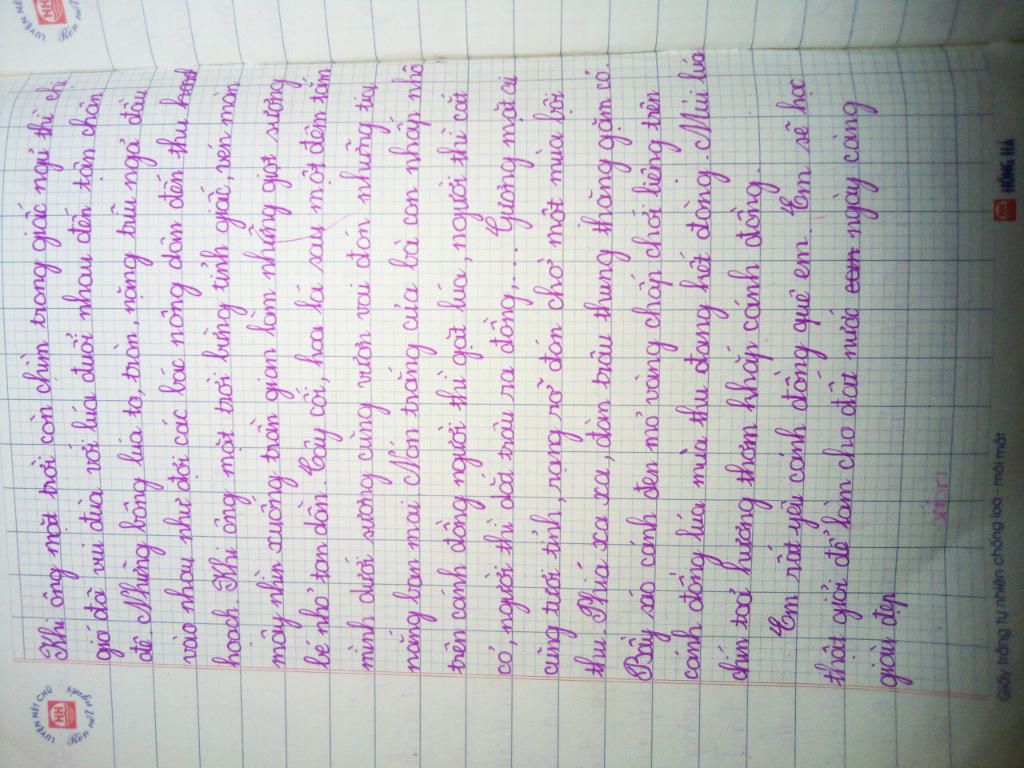 LUYỆN NÉT CHỮ
HH
Rèn nết người
Khi ông mặt trời còn chìm trong giấc ngủ thì chị
gió đã vui đùa với lúa đuổi nhau đến tận chân
đê. Những bông lúa to, tròn, nặng trĩu ngả đầu
vào nhau như đợi các bác nông dân đến thu
hoạch. Khi ông mặt trời bừng tỉnh giấc, vén màn
mây nhìn xuống trần gian làm những giọt sương
bé nhỏ tan dần. Cây cối, hoa lá sau một đêm tắm
mình dưới sương cùng vươn vai đón những tia
nắng ban mai. Nón trắng của bà con nhấp nhô
trên cánh đồng người thì gặt lúa, người thì cắt
cỏ, người thì dắt trâu ra đồng,.... Gương mặt ai
cũng tươi tỉnh, rạng rỡ đón chờ một mùa lúa
thu. Phía xa xa, đàn trâu thung thăng gặm cỏ.
Bầy sáo cánh đen mỏ vàng chấp chới liệng trên
cánh đồng lúa mùa thu đang hót đòng. Mùi lúa
chín toả hương thơm khắp cánh đồng.
Em rất yêu cánh đồng quê em. Em sẽ học
thật giỏi để làm cho đất nước ngày càng
giàu đẹp
Giấy trắng tự nhiên chống loá - mỏi mắt
HH HỒNG HÀ